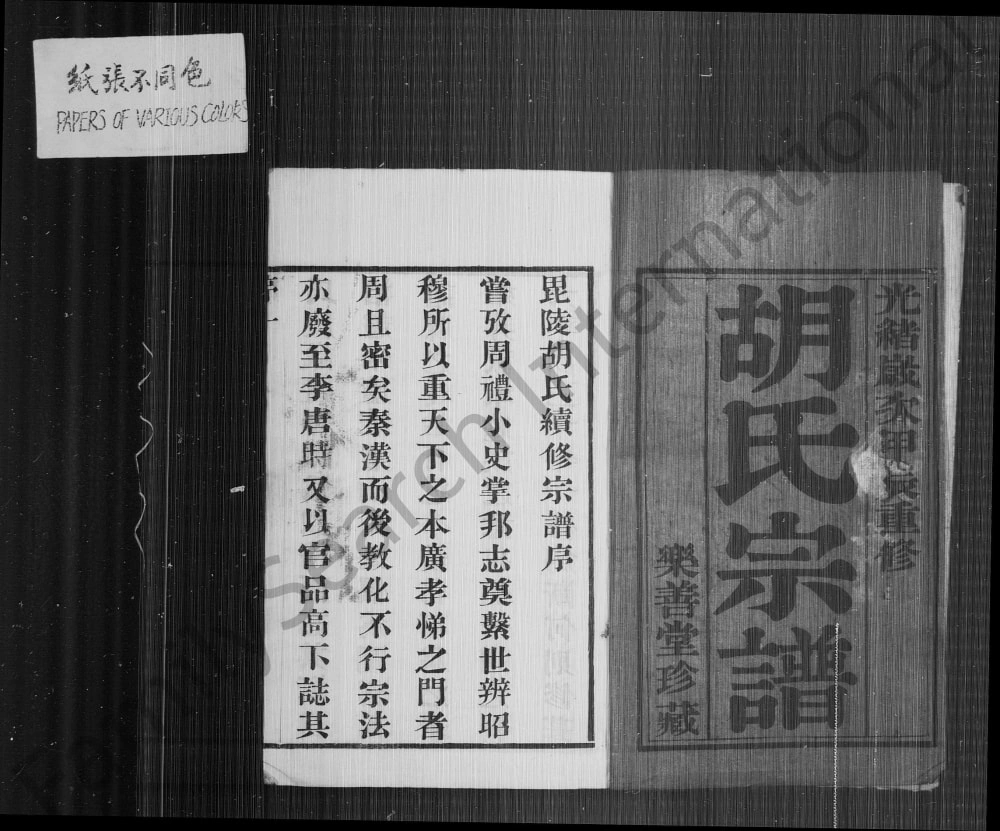 纸張不同色
PAPERS OF VARIOUS COLORS
光緒歲次甲辰重修
胡氏宗譜
樂善堂珍藏
毘陵胡氏續修宗譜序
嘗攷周禮小史掌邦志奠繫世辨昭
穆所以重天下之本廣孝悌之門者
周且密矣秦漢而後教化不行宗法
亦廢至李唐時又以官品高下誌其
序一
FamilySearch International